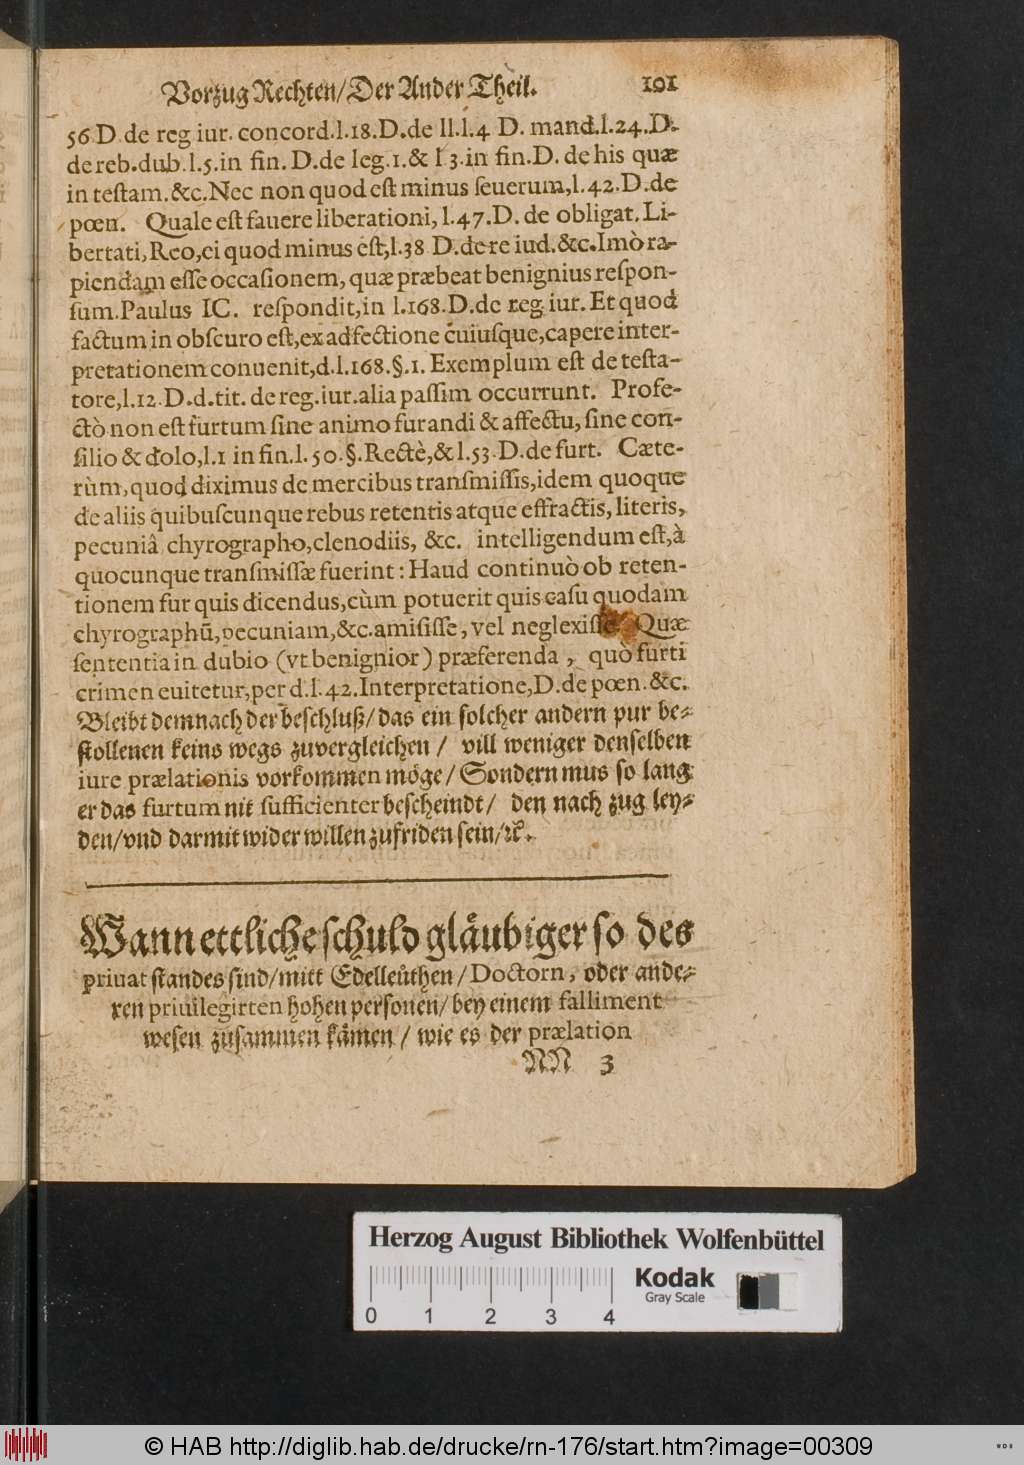 Vorzug Rechten/ Der Ander Theil. 101
56 D de reg iur. concord.l.18.D.de ll.l.4 D. mand.l.24.D.
de reb.dub.l.5.in fin. D.de leg.1.& l 3.in fin.D. de his quæ
in teſtam.&c.Nec non quod eſt minus ſeuerum,l.42.D.de
pœn. Quale eſt fauere liberationi, l.47.D. de obligat. Li-
bertati,Reo,ei quod minus eſt,l.38 D.de re iud.&c.Imò ra-
piendam eſſe occaſionem, quæ præbeat benignius reſpon-
ſum.Paulus IC. reſpondit,in l.168.D.de reg iur. Et quod
factum in obſcuro eſt,ex adfectione cuiuſque,capere inter-
pretationem conuenit,d.l.168.§.1. Exemplum eſt de teſta-
tore,l.12 D.d.tit. de reg.iur.alia paſſim occurrunt. Profe-
ctò non eſt furtum ſine animo furandi & affectu, ſine con-
ſilio & dolo,l.1 in fin.l.50.§.Rectè,& l.53.D.de furt. Cæte-
rùm,quod diximus de mercibus tranſmiſſis,idem quoque
de aliis quibuſcunque rebus retentis atque effractis, literis,
pecuniâ chyrographo,clenodiis, &c. intelligendum eſt,à
quocunque tranſmiſſæ fuerint : Haud continuò ob reten-
tionem fur quis dicendus,cùm potuerit quis caſu quodam
chyrographũ,pecuniam,&c.amiſiſſe, vel neglexiſſe. Quæ
ſententia in dubio (vt benignior) præferenda, quò furti
crimen euitetur,per d.l.42.Interpretatione,D.de pœn.&c.
Bleibt demnach der beſchluß/ das ein ſolcher andern pur be-
ſtollenen keins wegs zuvergleichen / vill weniger denſelben
iure prælationis vorkommen möge/ Sondern mus ſo lang
er das furtum nit ſufficienter beſcheindt/ den nach zug ley-
den/ vnd darmit wider willen zufriden ſein/ ꝛc.
Wann ettliche ſchuld gläubiger ſo des
priuat ſtandes ſind/ mitt Edelleüthen/ Doctorn, oder ande-
ren priuilegirten hohen perſonen/ bey einem falliment
weſen zuſammen kämen / wie es der prælation
NN 3
Herzog August Bibliothek Wolfenbüttel
Kodak
Gray Scale
0 1 2 3 4
© HAB http://diglib.hab.de/drucke/rn-176/start.htm?image=00309